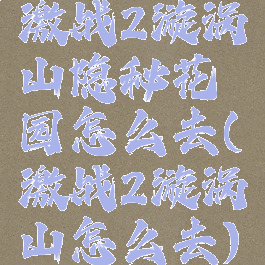 激战2漩涡
山隐秘花
园怎么去(
激战2漩涡
山怎么去)